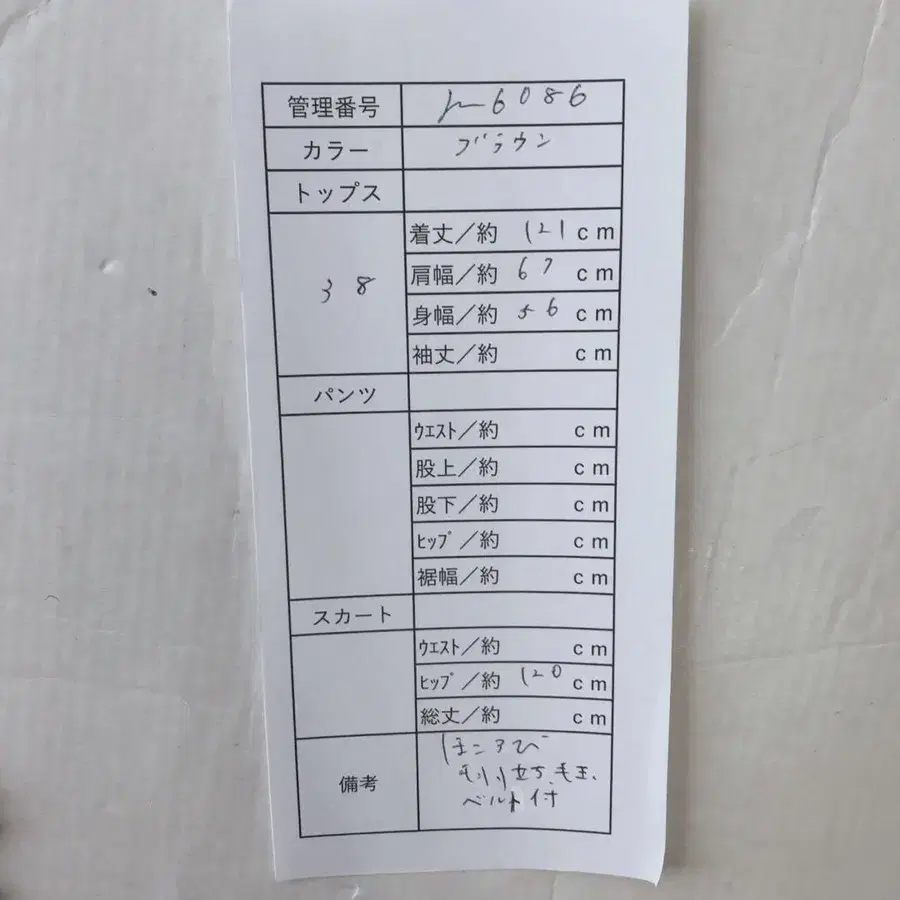 管理番号 6086
カラー ブラウン
トップス
38
着丈／約 121 cm
肩幅／約 67 cm
身幅／約 56 cm
袖丈／約 cm
パンツ
ｳｴｽﾄ／約 cm
股上／約 cm
股下／約 cm
ﾋｯﾌﾟ／約 cm
裾幅／約 cm
スカート
ｳｴｽﾄ／約 cm
ﾋｯﾌﾟ／約 120 cm
総丈／約 cm
備考
ほころび
毛羽立ち、毛玉、
ベルト付